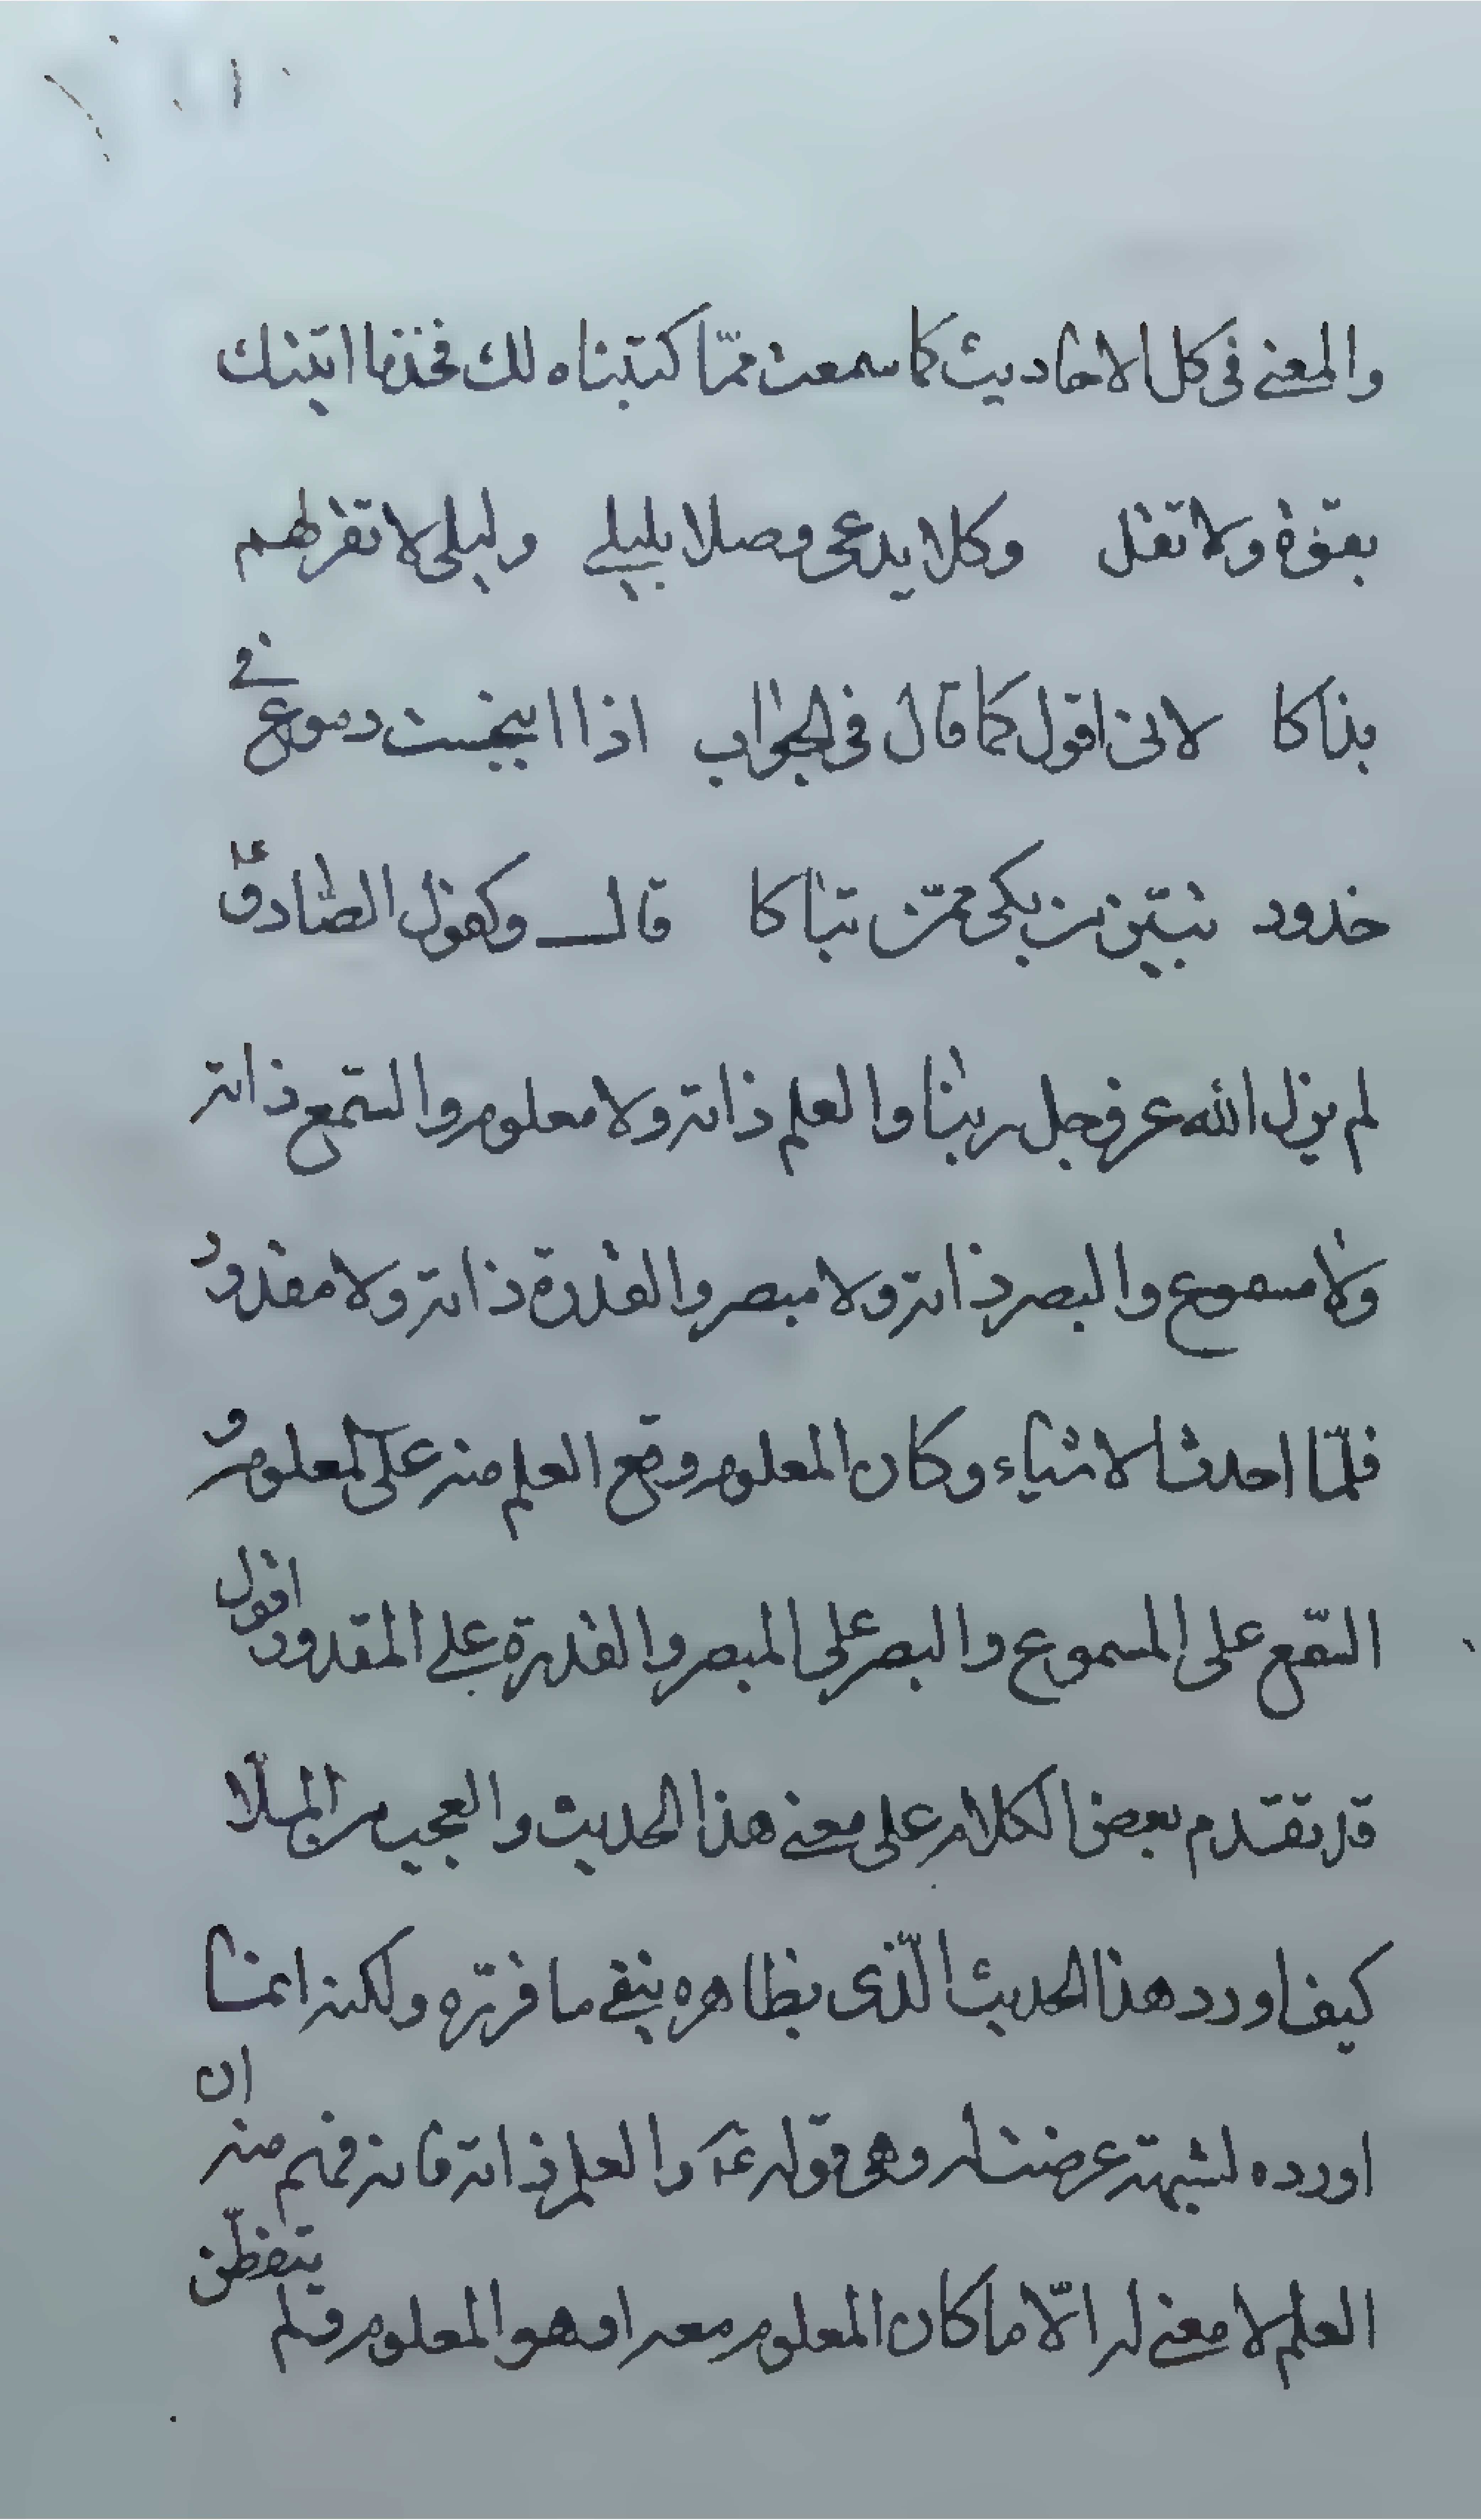 والمعنى فى كل الاحاديث كما سمعت ممّا كتبناه لك فخذ ما اتيتك
بقوة ولا تقل وكلا يدعى وصلا بليلى وليلى لا تقر لهم
بذاكا لانى اقول كما قال فى الجواب اذا انبجست دموع فى
خدود تبيّن من بكى ممّن تباكا قال وكقول الصّادق ع
لم يزل الله عز وجل ربنا والعلم ذاته ولا معلوم والسّمع ذاته
ولا مسموع والبصر ذاته ولا مبصر والقدرة ذاته ولا مقدور
فلمّا احدث الاشياء وكان المعلوم وقع العلم منه على المعلوم و
السّمع على المسموع والبصر على المبصر والقدرة على المقدور اقول
قد تقدم بعض الكلام على معنى هذا الحديث والعجب من الملّا
كيف اورد هذا الحديث الّذى بظاهره ينفى ما قرّره ولكنه انما
اورده لشبهة عرضت له وهى قوله ع والعلم ذاته فانه فهم منه ان
العلم لا معنى له الّا ما كان المعلوم معه او هو المعلوم ولم يتفطّن